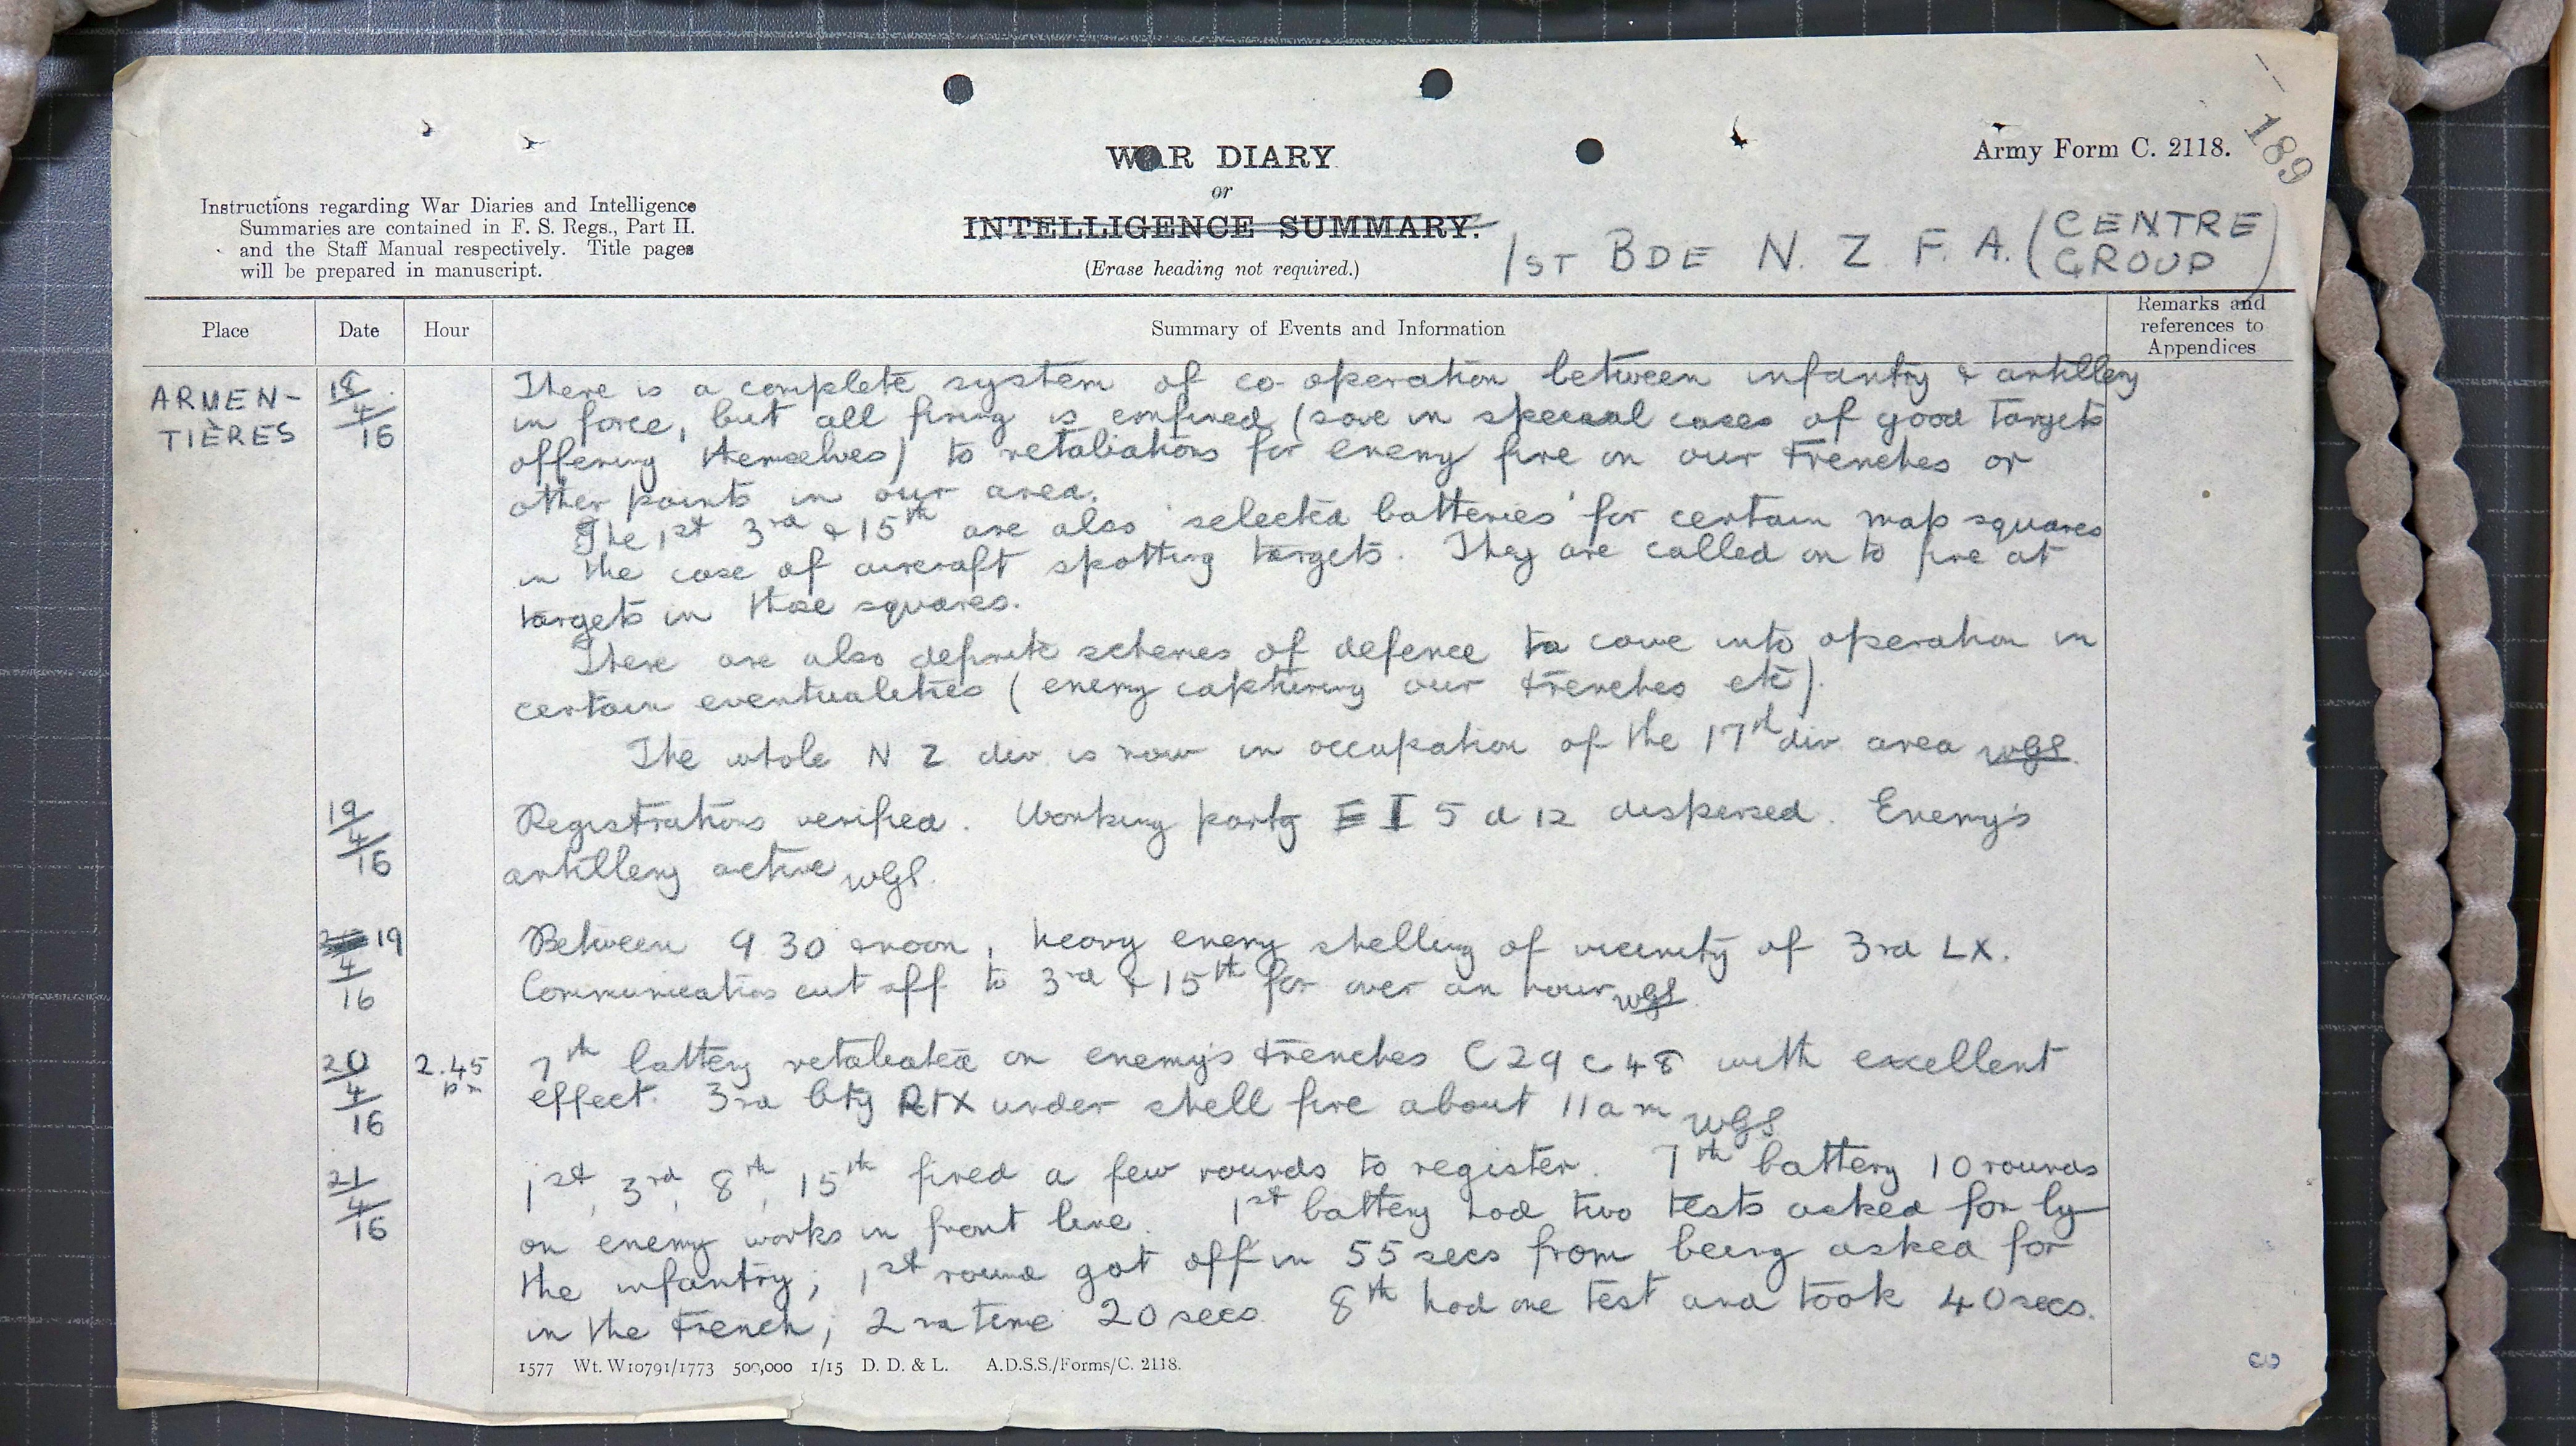 189
Army Form C. 2118.
WAR DIARY
or
INTELLIGENCE SUMMARY.
(Erase heading not required.)
Instructions regarding War Diaries and Intelligence
Summaries are contained in F. S. Regs., Part II.
and the Staff Manual respectively. Title pages
will be prepared in manuscript.
1ST BDE N. Z. F. A. (CENTRE
GROUP)
Place Date Hour Summary of Events and Information Remarks and
references to
Appendices
ARMEN-
TIÈRES
18/4/16
There is a complete system of co-operation between infantry & artillery
in force, but all firing is confined (save in special cases of good targets
offering themselves) to retaliations for enemy fire on our trenches or
other points in our area.
The 1st 3rd & 15th are also 'selected batteries' for certain map squares
in the case of aircraft spotting targets. They are called on to fire at
targets in those squares.
There are also definite schemes of defence to come into operation in
certain eventualities (enemy capturing our trenches etc).
The whole N Z div. is now in occupation of the 17th div. area WGS.
19/4/16 Registrations verified. Working party I 5 d 12 dispersed. Enemy's
artillery active WGS.
19/4/16 Between 9 30 & noon, heavy enemy shelling of vicinity of 3rd LX.
Communication cut off to 3rd & 15th for over an hour WGS.
20/4/16 2.45 pm 7th battery retaliated on enemy's trenches C 29 c 48 with excellent
effect. 3rd bty RTX under shell fire about 11 am WGS
21/4/16 1st, 3rd, 8th, 15th fired a few rounds to register. 7th battery 10 rounds
on enemy works in front line. 1st battery had two tests asked for by
the infantry; 1st round got off in 55 secs from being asked for
in the trench; 2nd time 20 secs. 8th had one test and took 40 secs.
1577 Wt. W10791/1773 500,000 1/15 D. D. & L. A.D.S.S./Forms/C. 2118.